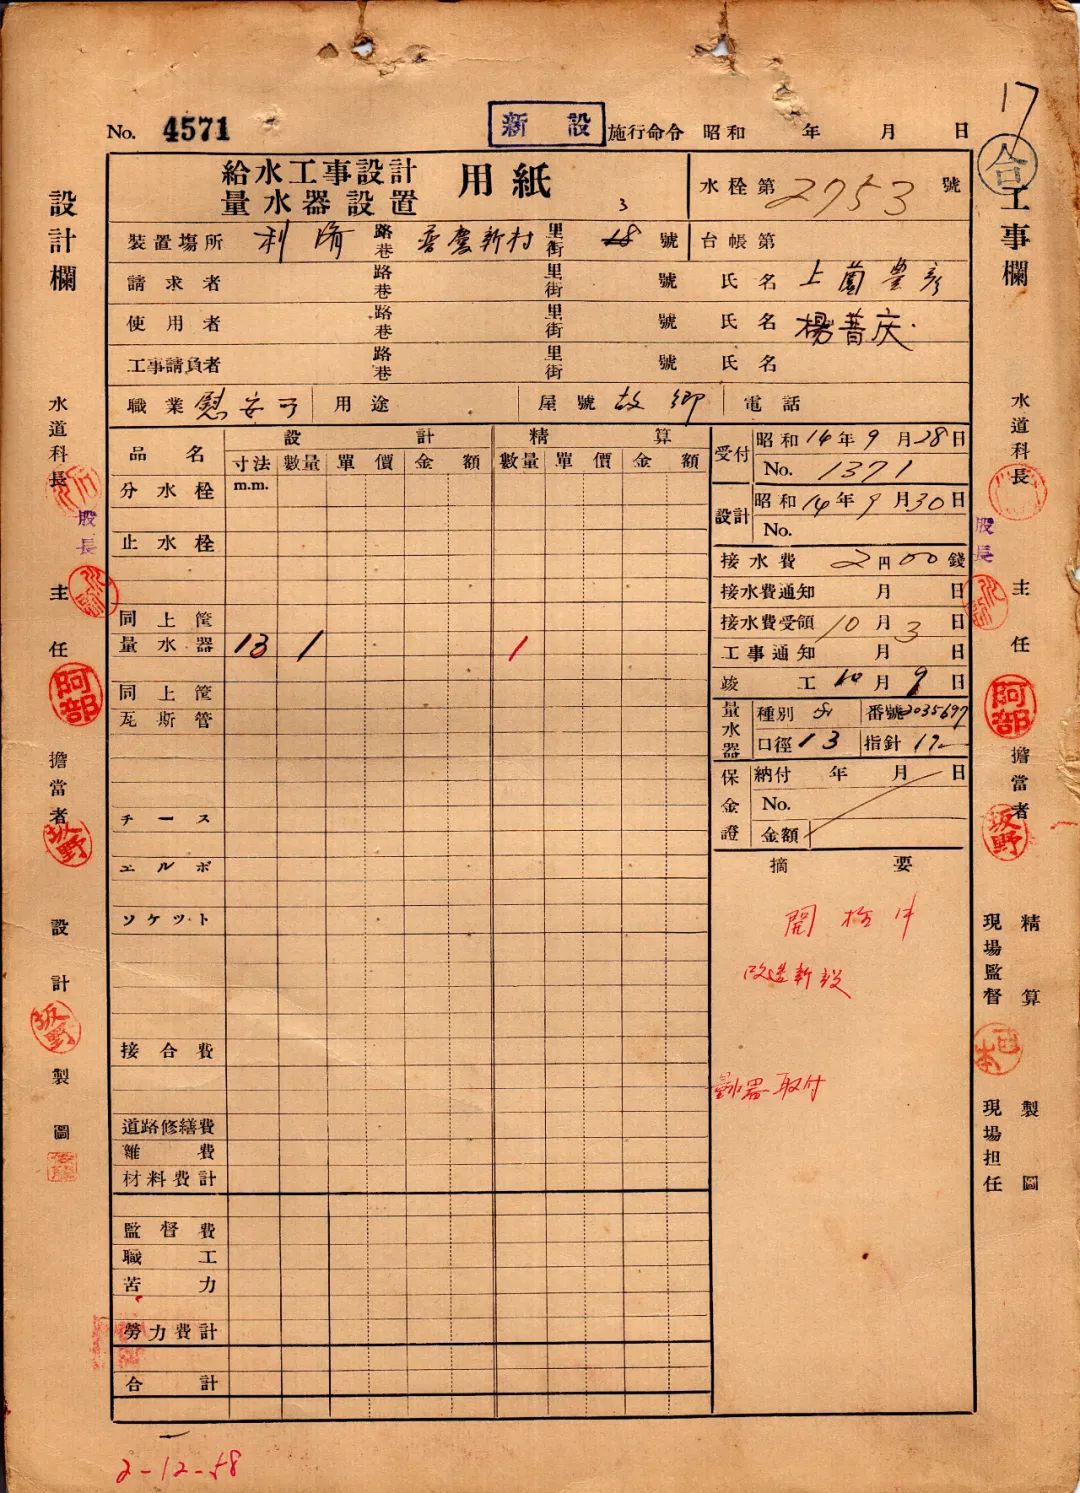 17
No. 4571 新設 施行命令 昭和 年 月 日
合
給水工事設計
量水器設置 用紙
水栓第 2753 號
装置場所 利濟 路巷 普慶新村 里街 18 3 號 台帳第
請求者 路巷 里街 號 氏名 上薗豊彦
使用者 路巷 里街 號 氏名 楊普庆
工事請負者 路巷 里街 號 氏名
職業 慰安所 用途 屋號 故鄉 電話
品名 設計 精算
寸法 數量 單價 金額 數量 單價 金額
m.m.
分水栓
止水栓
同上筐
量水器 13 1 1
同上筐
瓦斯管
チース
エルボ
ソケット
接合費
道路修繕費
雜費
材料費計
監督費
職工
苦力
勞力費計
合計
受付 昭和14年9月28日
No. 1371
設計 昭和14年9月30日
No.
接水費 2円00錢
接水費通知 月 日
接水費受領 10月3日
工事通知 月 日
竣工 10月9日
量水器 種別 番號 2035697
口徑 13 指針 17
保金證 納付 年 月 日
No.
金額
摘要
開栓中
改造新設
量水器取付
設計欄
水道科長
股長
主任
阿部
擔當者
坂野
設計
坂野
製圖
工事欄
水道科長
股長
主任
阿部
擔當者
坂野
精算
現場監督
製圖
現場担任
2-12-58